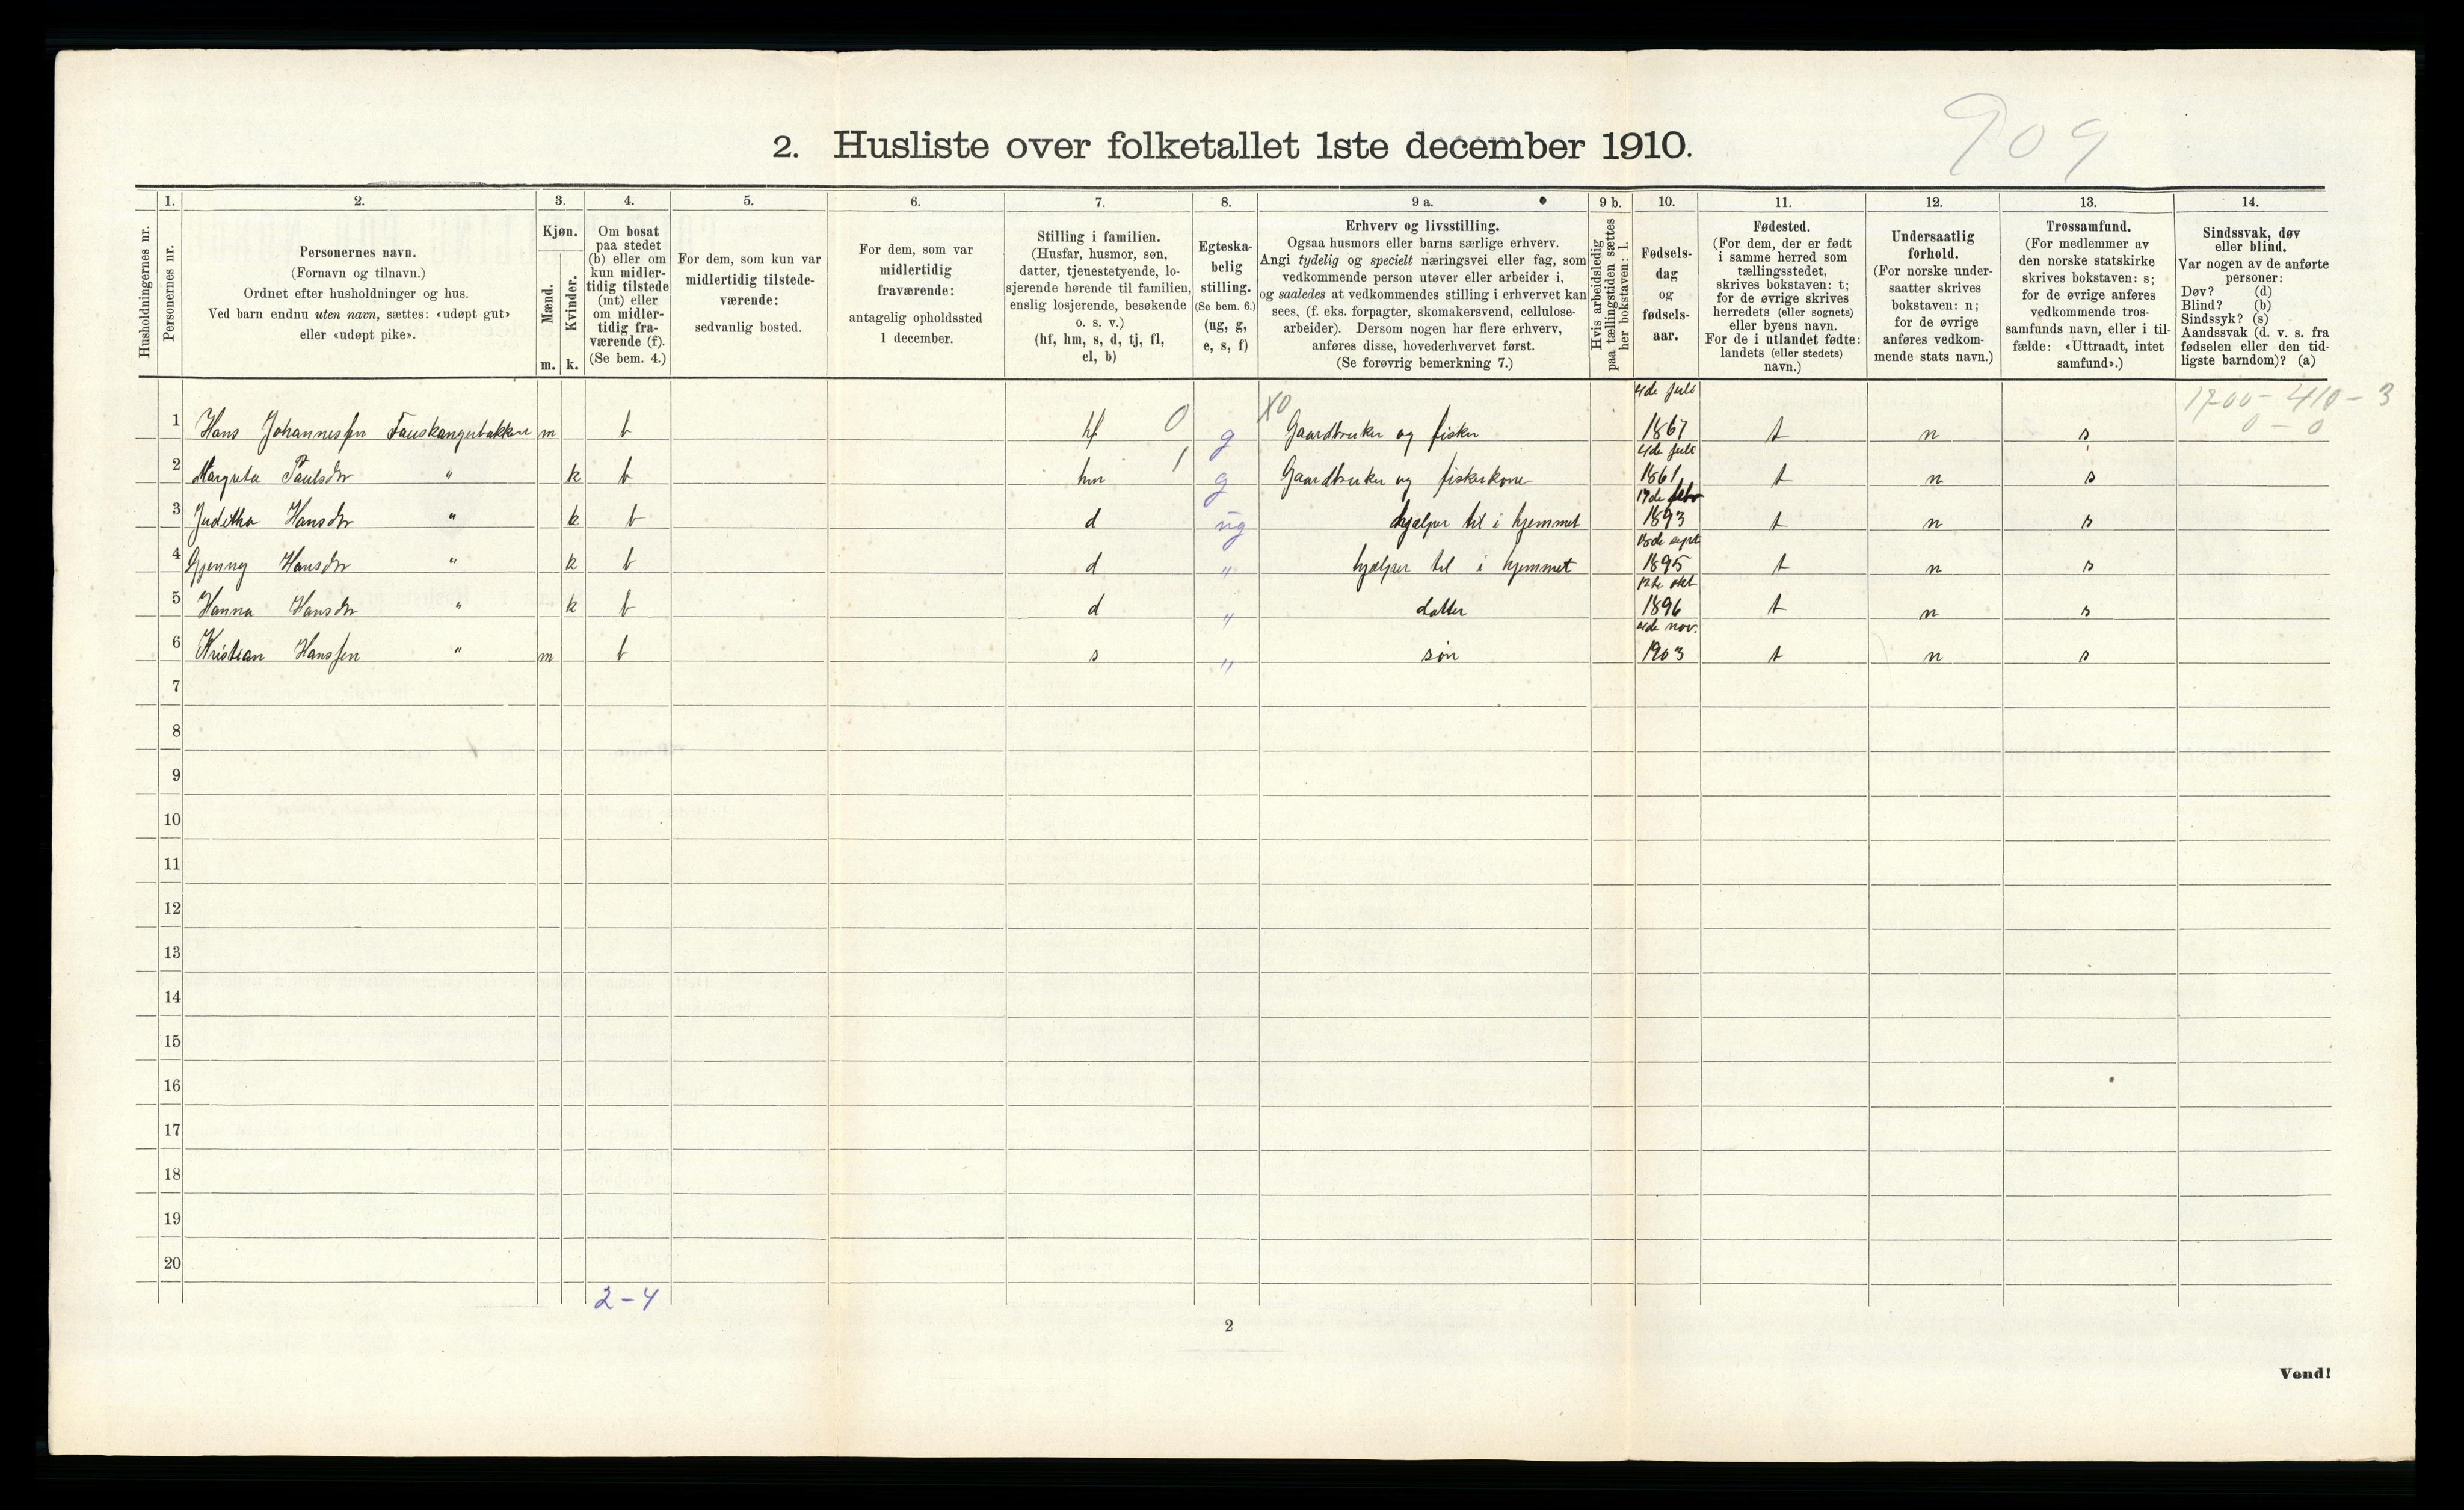 909
2. Husliste over folketallet 1ste december 1910.
Husholdningernes nr.
1.
Personernes nr.
2.
Personernes navn.
(Fornavn og tilnavn.)
Ordnet efter husholdninger og hus.
Ved barn endnu uten navn, sættes: «udøpt gut»
eller «udøpt pike».
3.
Kjøn.
Mænd.
Kvinder.
m. k.
4.
Om bosat
paa stedet
(b) eller om
kun midler-
tidig tilstede
(mt) eller
om midler-
tidig fra-
værende (f).
(Se bem. 4.)
5.
For dem, som kun var
midlertidig tilstede-
værende:
sedvanlig bosted.
6.
For dem, som var
midlertidig
fraværende:
antagelig opholdssted
1 december.
7.
Stilling i familien.
(Husfar, husmor, søn,
datter, tjenestetyende, lo-
sjerende hørende til familien,
enslig losjerende, besøkende
o. s. v.)
(hf, hm, s, d, tj, fl,
el, b)
8.
Egteska-
belig
stilling.
(Se bem. 6.)
(ug, g,
e, s, f)
9 a.
Erhverv og livsstilling.
Ogsaa husmors eller barns særlige erhverv.
Angi tydelig og specielt næringsvei eller fag, som
vedkommende person utøver eller arbeider i,
og saaledes at vedkommendes stilling i erhvervet kan
sees, (f. eks. forpagter, skomakersvend, cellulose-
arbeider). Dersom nogen har flere erhverv,
anføres disse, hovederhvervet først.
(Se forøvrig bemerkning 7.)
9 b.
Hvis arbeidsledig
paa tællingstiden sættes
her bokstaven: l.
10.
Fødsels-
dag
og
fødsels-
aar.
11.
Fødested.
(For dem, der er født
i samme herred som
tællingsstedet,
skrives bokstaven: t;
for de øvrige skrives
herredets (eller sognets)
eller byens navn.
For de i utlandet fødte:
landets (eller stedets)
navn.)
12.
Undersaatlig
forhold.
(For norske under-
saatter skrives
bokstaven: n;
for de øvrige
anføres vedkom-
mende stats navn.)
13.
Trossamfund.
(For medlemmer av
den norske statskirke
skrives bokstaven: s;
for de øvrige anføres
vedkommende tros-
samfunds navn, eller i til-
fælde: «Uttraadt, intet
samfund».)
14.
Sindssvak, døv
eller blind.
Var nogen av de anførte
personer:
Døv? (d)
Blind? (b)
Sindssyk? (s)
Aandssvak (d. v. s. fra
fødselen eller den tid-
ligste barndom)? (a)
1700 - 410 - 3
0 - 0
1 Hans Johannessen Fauskangerbakken m b hf 0 g X0 Gaardbruker og fisker 4de juli 1867 t n s
2 Margreta Paulsdtr " k b hm 1 g Gaardbruker og fiskerkone 4de juli 1861 t n s
3 Juditha Hansdtr " k b d ug hjælper til i hjemmet 17de febr 1893 t n s
4 Gjenny Hansdtr " k b d " hjælper til i hjemmet sept 1895 t n s
5 Hanna Hansdtr " k b d " datter 12te okt 1896 t n s
6 Kristian Hanssen " m b s " søn 4de nov. 1903 t n s
7
8
9
10
11
12
13
14
15
16
17
18
19
20
2 - 4
2
Vend!